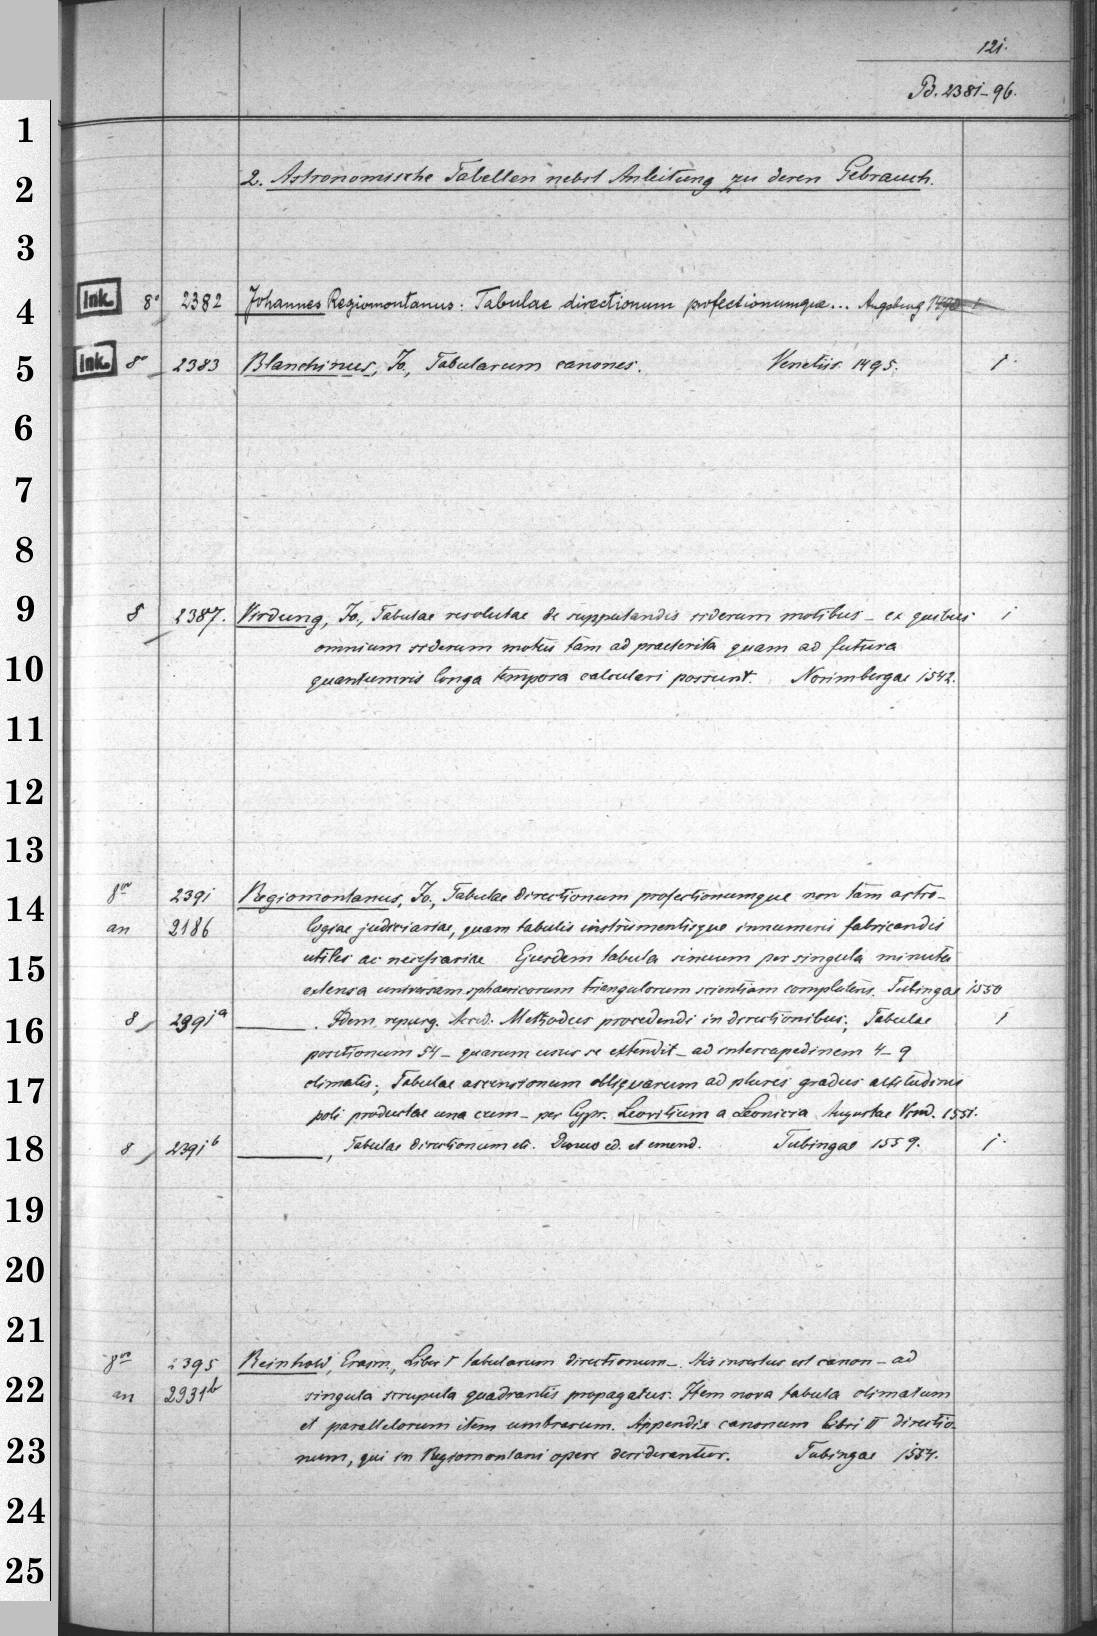 121.
Bd. 2381-96.
1
2 2. Astronomische Tabellen nebst Anleitung zu deren Gebrauch.
3
4 Ink. 8° 2382 Johannes Regiomontanus: Tabulae directionum profectionumque... Augsburg 1490 1
5 Ink. 8° 2383 Blanchinus, Jo., Tabularum canones. Venetiis 1495. 1
6
7
8
9 8 2387. Virdung, Jo., Tabulae resolutae de supputandis siderum motibus - ex quibus 1
omnium siderum motus tam ad praeterita quam ad futura
10 quantumvis longa tempora calculari possunt. Norimbergae 1542.
11
12
13
14 8vo 2391 Regiomontanus, Jo., Tabulae directionum profectionumque non tam astro-
an 2186 logiae judiciariae, quam tabulis instrumentisque innumeris fabricandis
15 utiles ac necessariae Ejusdem tabula sinuum per singula minuta
extensa universam sphaericorum triangulorum scientiam complectens. Tubingae 1550
16 8 2391a ——. Idem repurg. Accd. Methodus procedendi in directionibus; Tabulae 1
positionum 54 - quarum usus se extendit - ad intercapedinem 4-9
17 climatis; Tabulae ascensionum obliquarum ad plures gradus altitudinis
poli productae una cum - per Cypr. Leovitium a Leonicia Augustae Vind. 1551.
18 8 2391b ——, Tabulae directionum etc. Denuo ed. et emend. Tubingae 1559. 1
19
20
21
8vo 2395 Reinhold, Erasm., Liber I tabularum directionum -. His insertus est canon - ad
22 an 2931b singula scrupula quadrantis propagatus. Item nova tabula climatum
et parallelorum item umbrarum. Appendix canonum libri II directio-
23 num, qui in Regiomontani opere desiderantur. Tubingae 1554.
24
25